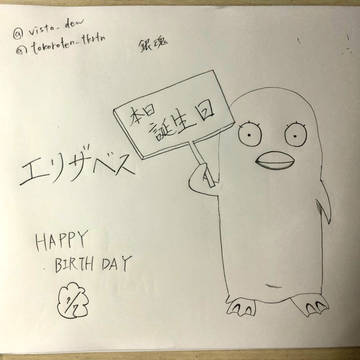 @ vista_dew
@ tokoroten_tkrtn
銀魂
本日
誕生日
エリザベス
HAPPY
BIRTH DAY